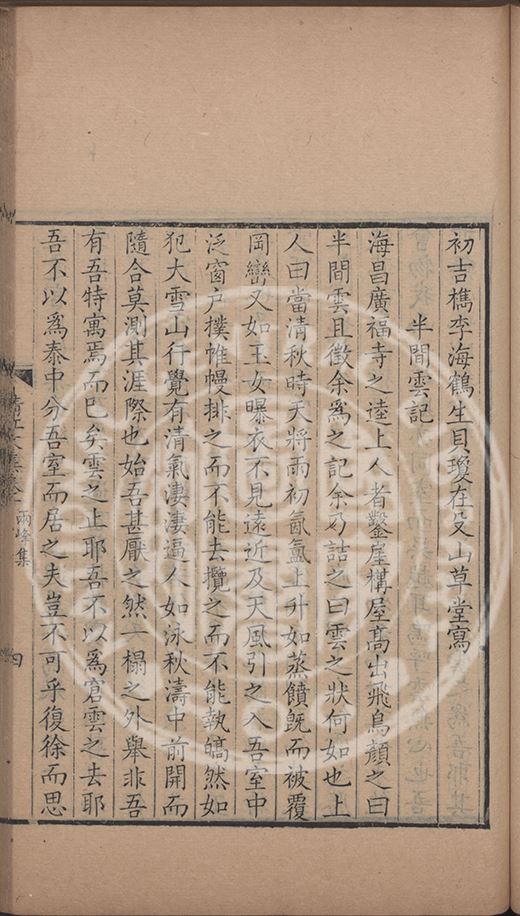 初吉檇李海鶴生貝瓊在殳山草堂寫
半間雲記
海昌廣福寺之逵上人者鑿崖構屋高出飛鳥顏之曰
半間雲且徵余爲之記余乃詰之曰雲之狀何如也上
人曰當清秋時天將雨初氤氳上升如蒸饙旣而被覆
岡巒又如玉女曝衣不見遠近及天風引之入吾室中
泛窗户撲帷幔排之而不能去攬之而不能執皜然如
犯大雪山行覺有清氣淒淒逼人如泳秋濤中前開而
隨合莫測其涯際也始吾甚厭之然一榻之外舉非吾
有吾特寓焉而巳矣雲之止耶吾不以爲窘雲之去耶
吾不以爲泰中分吾室而居之夫豈不可乎復徐而思
清江 集卷
兩峰集
四